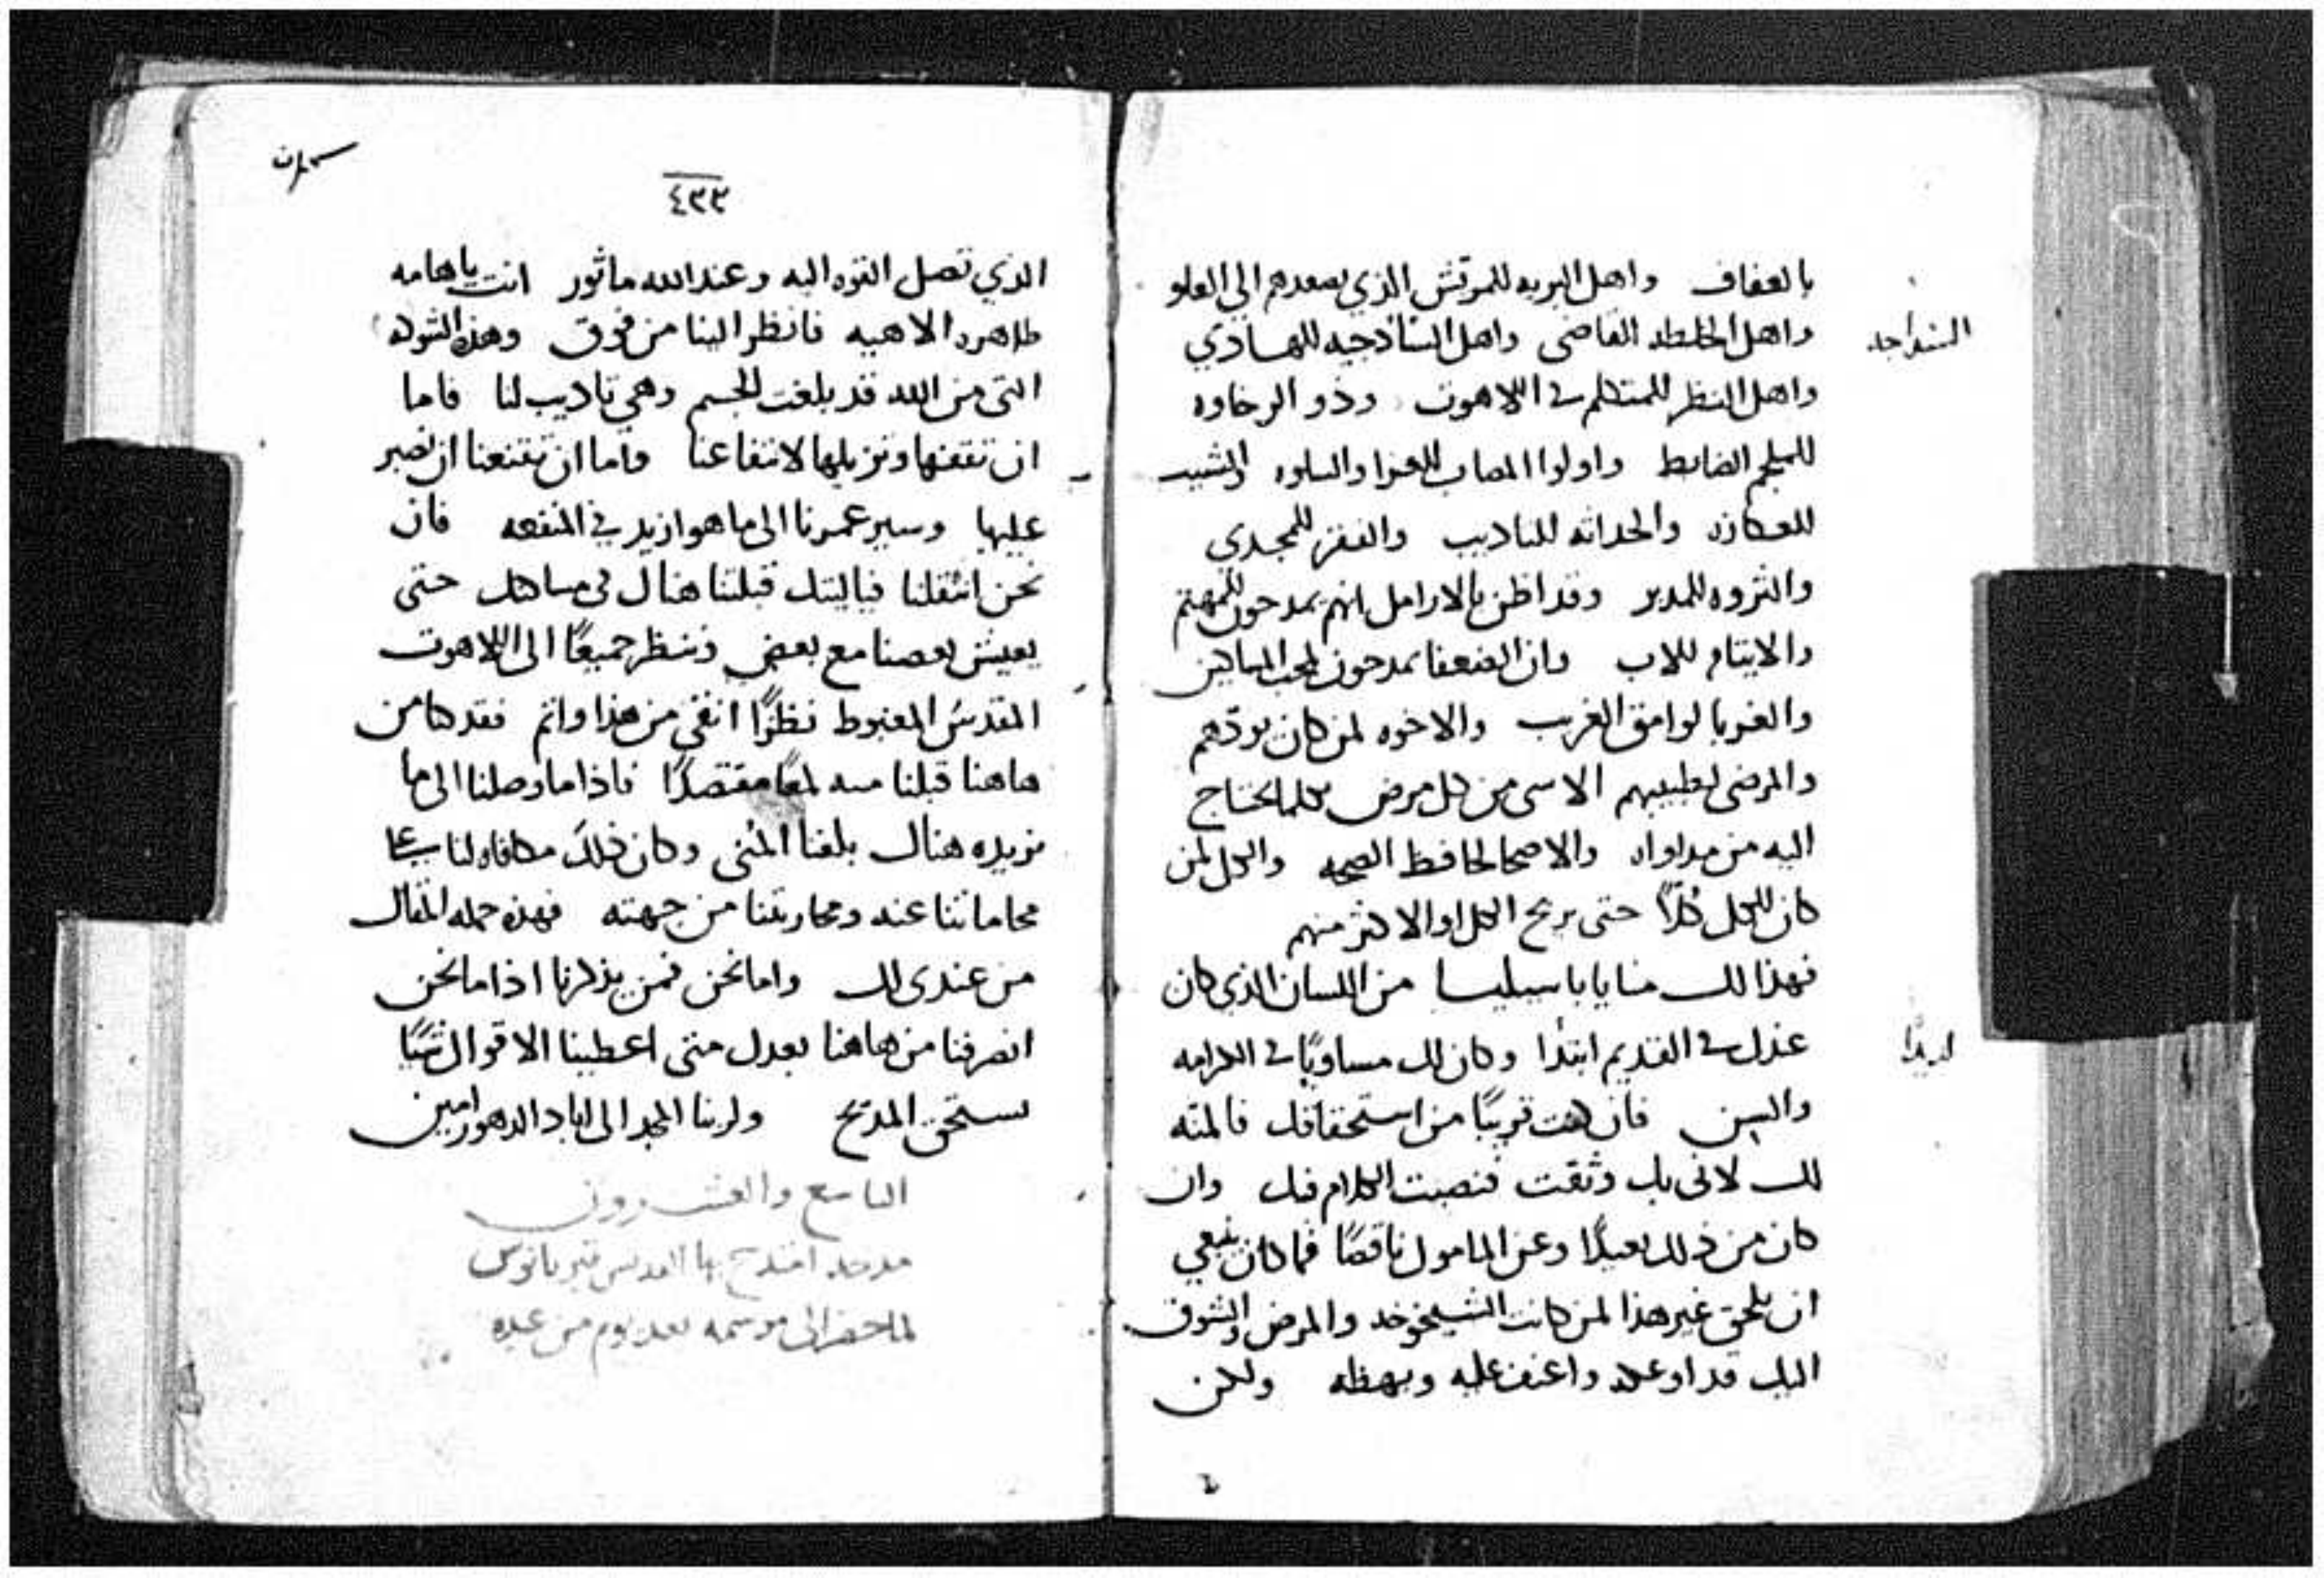 بالعفاف واهل البريه للمرتش الذي يصعدهم الى العلو
واهل الخلطه القاضى واهل الساذجيه للهادي
السذاجه
واهل النظر للمتكلم في اللاهوت وذو الرخاوه
للملجم الضابط واولوا المصاب للعزا والسلوه والشيب
للعكازه والحداثه للتاديب والفقر للمجدي
والثروه للمدبر وقد اظن بالارامل انهم يمدحون للمهتم
والايتام للاب وان الضعفا يمدحون لمحب المساكين
والغربا لوامق الغرب والاخوه لمن كان يودهم
والمرضى لطبيبهم الاسى من كل مرض بكلما يحتاج
اليه من مداواه والاصحا لحافظ الصحه والكل لمن
كان للكل كلاً حتى يربح الكل او الاكثر منهم
فهذا لك منا يا باسيليا من اللسان الذي كان
عذل في القديم ابتدا وكان لك مساويًا في الكرامه
لذيذًا
والسن فان كنت قريبًا من استحقاقك فالمنه
لك لانى بك وثقت فنصبت الكلام فيك وان
كان من ذلك بعيدًا وعن المامول ناقصًا فما كان ينبغي
ان يلحق غير هذا لمن كانت الشيخوخه والمرض والشوق
اليك قد اوعكه واعنف عليه وبهظه ولكن
٤٣٣
الذي تصل القوه اليه وعند الله ماثور انت يا هامه
طاهره الاهيه فانظر الينا من فوق وهذه الشوكه
التى من الله قد بلغت للجسم وهي تاديب لنا فاما
ان تقفها وتزيلها لانتفاعنا واما ان تقنعنا ان نصبر
عليها وسير عمرنا الى ما هو ازيد في المنفعه فان
نحن انتقلنا فياليتك قبلتنا هناك فى مساكنك حتى
يعيش بعضنا مع بعض وننظر جميعًا الى اللاهوت
المقدس المغبوط نظرًا انقى من هذا واتم فقد كنا من
هاهنا قبلنا منه لمعًا مقتصدًا فاذا ما وصلنا الى ما
نريده هناك بلغنا المنى وكان ذلك مكافاه لنا عما
محاماتنا عنه ومحاربتنا من جهته فهذه جمله المقال
من عندى لك واما نحن فمن يذكرنا اذا ما نحن
انصرفنا من هاهنا بعدك متى اعطينا الاقوال شيًا
يستحق المديح ولربنا المجد الى اباد الدهور امين
التاسع والعشرون
مدحه امتدح بها القديس قبريانوس
لما حضر الى موسمه بعد يوم من عيده